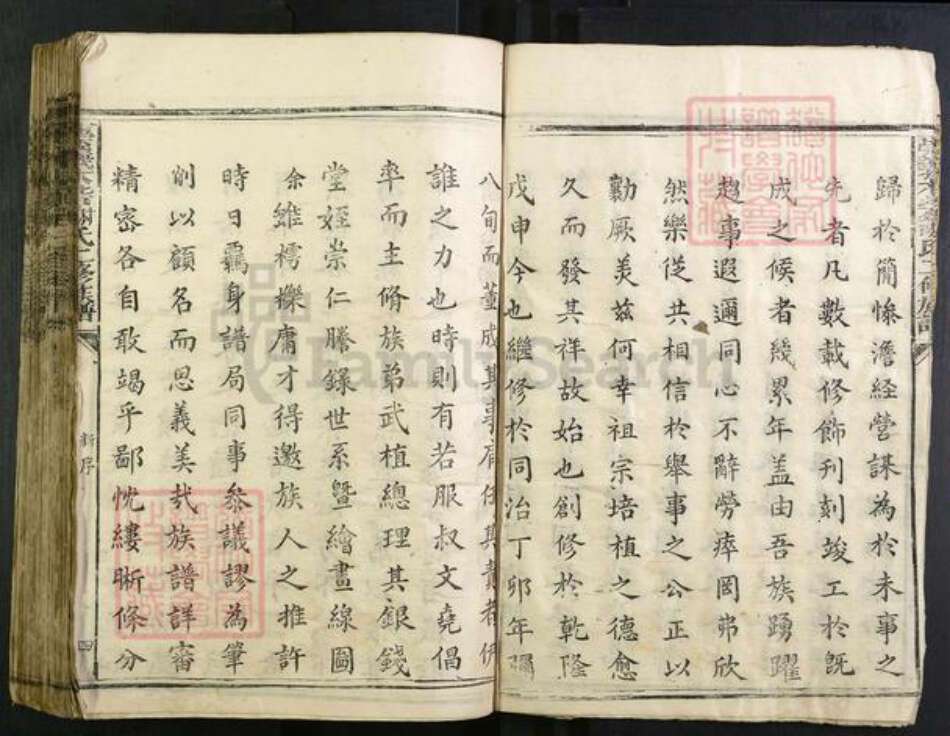 歸於簡慘澹經營謀為於未事之
先者凡數載修飾刊刻竣工於既
成之候者幾累年盖由吾族踴躍
趨事遐邇同心不辭勞瘁罔弗欣
然樂從共相信於舉事之公正以
勷厥美茲何幸祖宗培植之德愈
久而發其祥故始也創修於乾隆
戊申今也繼修於同治丁卯年
八旬而董成其事肩任其責者伊
誰之力也時則有若服叔文堯倡
率而主脩族弟武植總理其銀錢
堂姪崇仁謄錄世系暨繪畫線圖
余雖樗櫟庸才得邀族人之推許
時日羈身譜局同事參議謬為筆
削以顧名而思義美哉族譜詳審
精密各自敢竭乎鄙忱縷晰條分
新序
四
FamilySearch